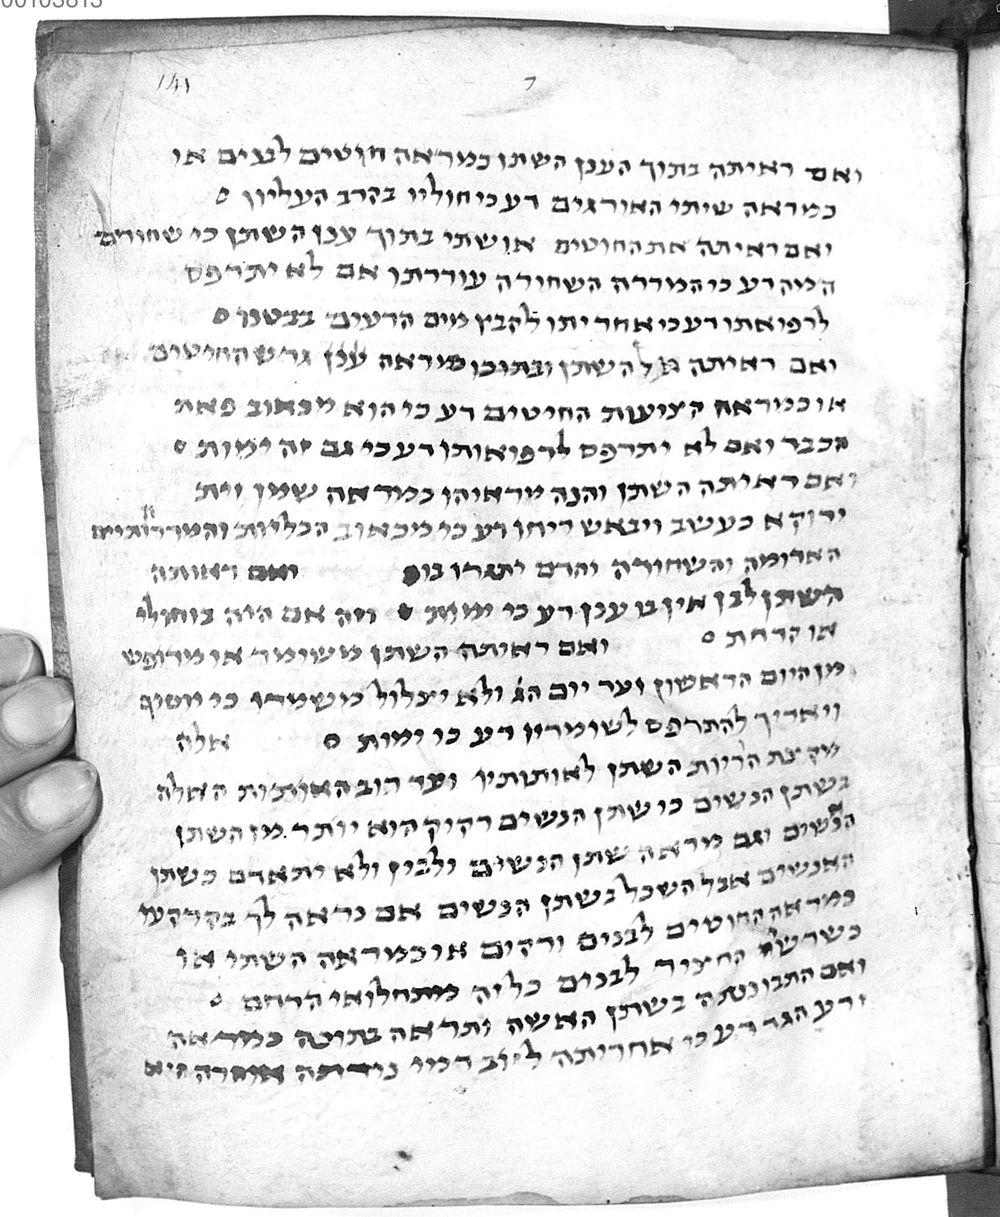 00103813
141
ואם ראיתה בתוך הענן השתן כמראה חוטים לבנים או
כמראה שיתי האורגים דע כי חוליו בקרב העליון ס
ואם ראיתה את החוטים או שתי בתוך ענן השתן כי שחורים
המה דע כי המררה השחורה עוררתו אם לא יתרפס
לרפואתו דע כי אחריתו להבץ מים הרעים בבטנו ס
ואם ראיתה השתן ובתוכו מראה ענן החיטים
או כמראה קציעות החיטים דע כי הוא מכאוב פאת
הכבד ואם לא יתרפס לרפואותו דע כי גם זה ימות ס
ואם ראיתה השתן והנה מראיהו כמראה שמן זית
ירוק א כעשב ויבאש ריחו דע כי מכאוב הכליות והמררות
האדומה והשחורה והדם יתגרו בו ס ואם ראיתה
השתן לבן אין בו ענן דע כי ימות ס וזה אם היה בוחולי
או קדחת ס ואם ראיתה השתן משומר או מרופש
מן היום הראשון ועד יום הג ולא יצלול כי
ויאריך להתרפס לשומריו דע כי ימות ס אלה
מקצת השתן לאותותיו ועד רוב האותות האלה
בשתן הנשים כי שתן הנשים רקיק הוא יותר מן השתן
הנשים וגם מראה שתן הנשים ולבין ולא יתאדם כשתן
האנשים אבל השכל בשתן הנשים אם נראה לך בקרקעו
כמראה החוטים לבנים ורקים או כמראה השתי או
כשרשי החציר לבנים כליה מתחלואי הרחם ס
ואם התבוננתה בשתן האשה ותראה בתוכה כמראה
זרע הגד דע כי אחריתה לזוב דמי נידתה היא